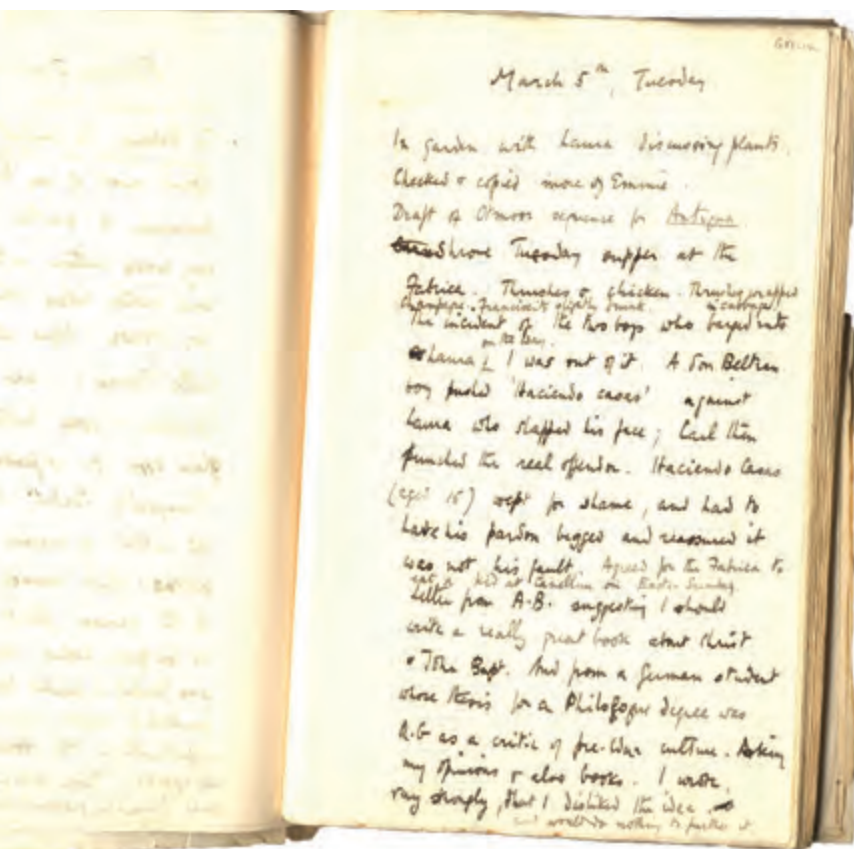 March 5th, Tuesday
In garden with Laura discussing plants.
Checked & copied more of Emmie.
Draft of Otmoor sequence for Antigua.
Shrove Tuesday supper at the
Fabrica. Thrushes & chicken. Thrushes wrapped
in cabbage.
Champagne. Francisco slightly drunk.
The incident of the two boys who barged into
on the way.
Laura I was out of it. A Son Beltran
boy pushed 'Haciendo casas' against
Laura who slapped his face; Carl then
punched the real offendor. Haciendo Casas
(aged 16) wept for shame, and had to
have his pardon begged and reassured it
was not his fault. Agreed for the Fabrica to
eat a kid at Canelluñ on Easter Sunday.
Letter from A.B. suggesting I should
write a really great book about Christ
& John Bapt. And from a German student
whose thesis for a Philologue degree was
R.G as a critic of pre-War culture. Asking
my opinions & also books. I wrote,
very sharply, that I disliked the idea
and would do nothing to further it.